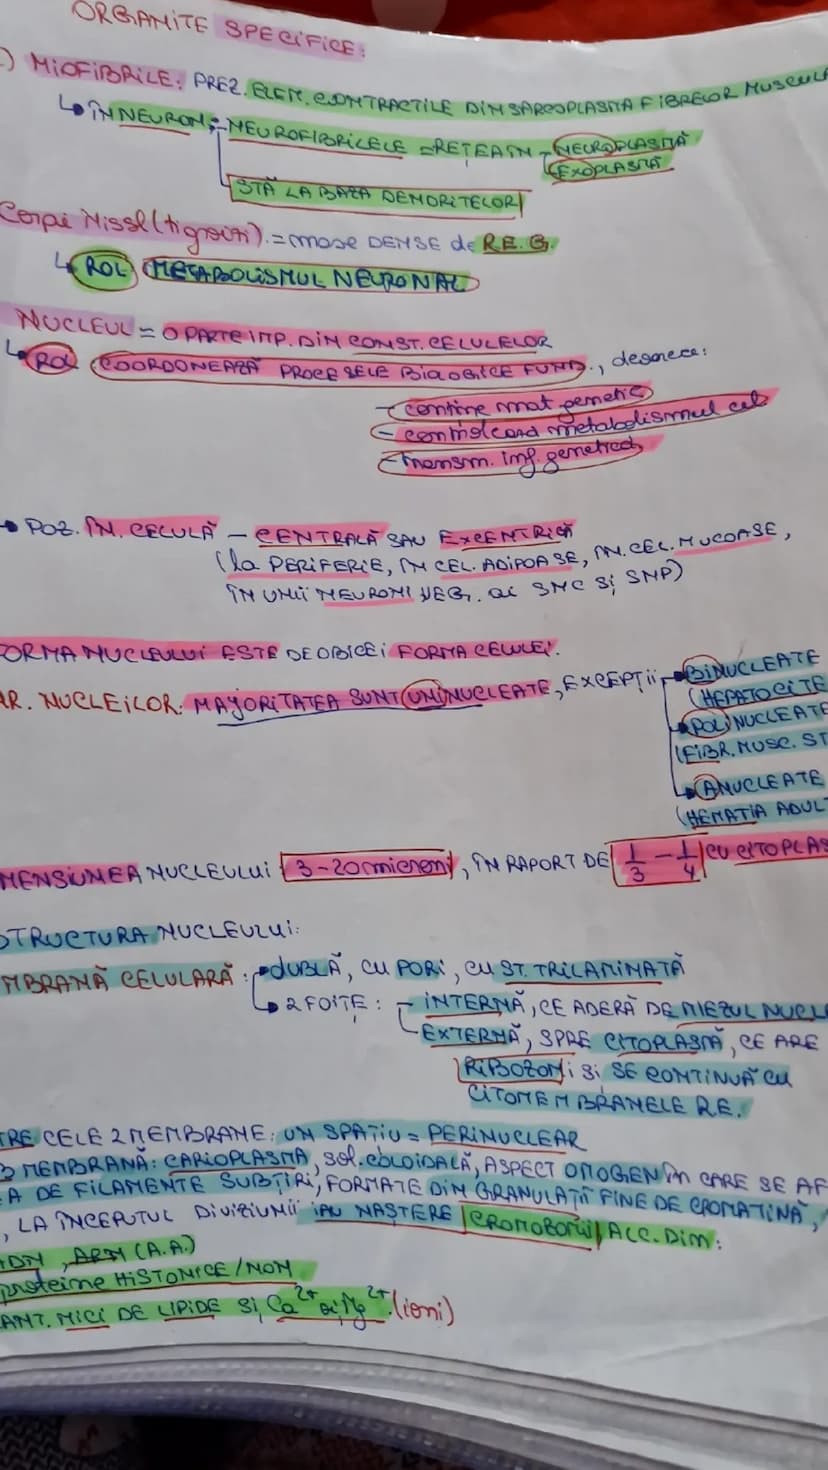 ORGANITE SPECIFICE:
) MIOFIBRILE: PREZ. ELEM. CONTRACTILE DIN SARCOPLASMA FIBRELOR MUSCULA
↳ ÎN NEURON: NEUROFIBRILELE = REȚEA ÎN - NEUROPLASMĂ
EXOPLASMĂ
STĂ LA BAZA DENDRITELOR
Corpi Nissl (tigroizi) = mase DENSE de R.E.G.
↳ ROL METABOLISMUL NEURONAL
NUCLEUL = O PARTE IMP. DIN CONST. CELULELOR
↳ ROL COORDONEAZĂ PROCESELE BIOLOGICE FUND., deoarece:
- contine mat genetic
- controlează metabolismul cel
- transm. inf. genetică
POZ. ÎN CELULĂ - CENTRALĂ SAU EXCENTRICĂ
(la PERIFERIE, ÎN CEL. ADIPOASE, ÎN CEL. MUCOASE,
ÎN UNII NEURONI VEG. ai SNC și SNP)
ORMA NUCLEULUI ESTE DE OBICEI FORMA CELULEI.
AR. NUCLEILOR: MAJORITATEA SUNT UNINUCLEATE, EXCEPȚII BINUCLEATE
(HEPATOCITE
POLINUCLEATE
(FIBR. MUSC. ST
ANUCLEATE
(HEMATIA ADUL
MENSIUNEA NUCLEULUI 3-20 (microni), ÎN RAPORT DE 1/3 - 1/4 CU CITOPLAS
STRUCTURA NUCLEULUI:
MBRANĂ CELULARĂ: DUBLĂ, CU PORI, CU ST. TRILAMINATĂ
↳ 2 FOIȚE: - INTERNĂ, CE ADERĂ DE MIEZUL NUCL
EXTERNĂ, SPRE CITOPLASMĂ, CE ARE
RIBOZOMI și SE CONTINUĂ CU
CITOMEMBRANELE R.E.
TRE CELE 2 MEMBRANE: UN SPAȚIU = PERINUCLEAR
B MEMBRANĂ: CARIOPLASMA, SOL. COLOIDALĂ, ASPECT OMOGEN în CARE SE AF
A DE FILAMENTE SUBȚIRI, FORMATE DIN GRANULAȚII FINE DE CROMATINĂ,
, LA ÎNCEPUTUL DIVIZIUNII IAU NAȘTERE CROMOZOMII, ALC. DIN:
ADN, ARN (A.A.)
proteine HISTONICE / NON
ANT. MICI DE LIPIDE și Ca²⁺ și Mg²⁺ (ioni)